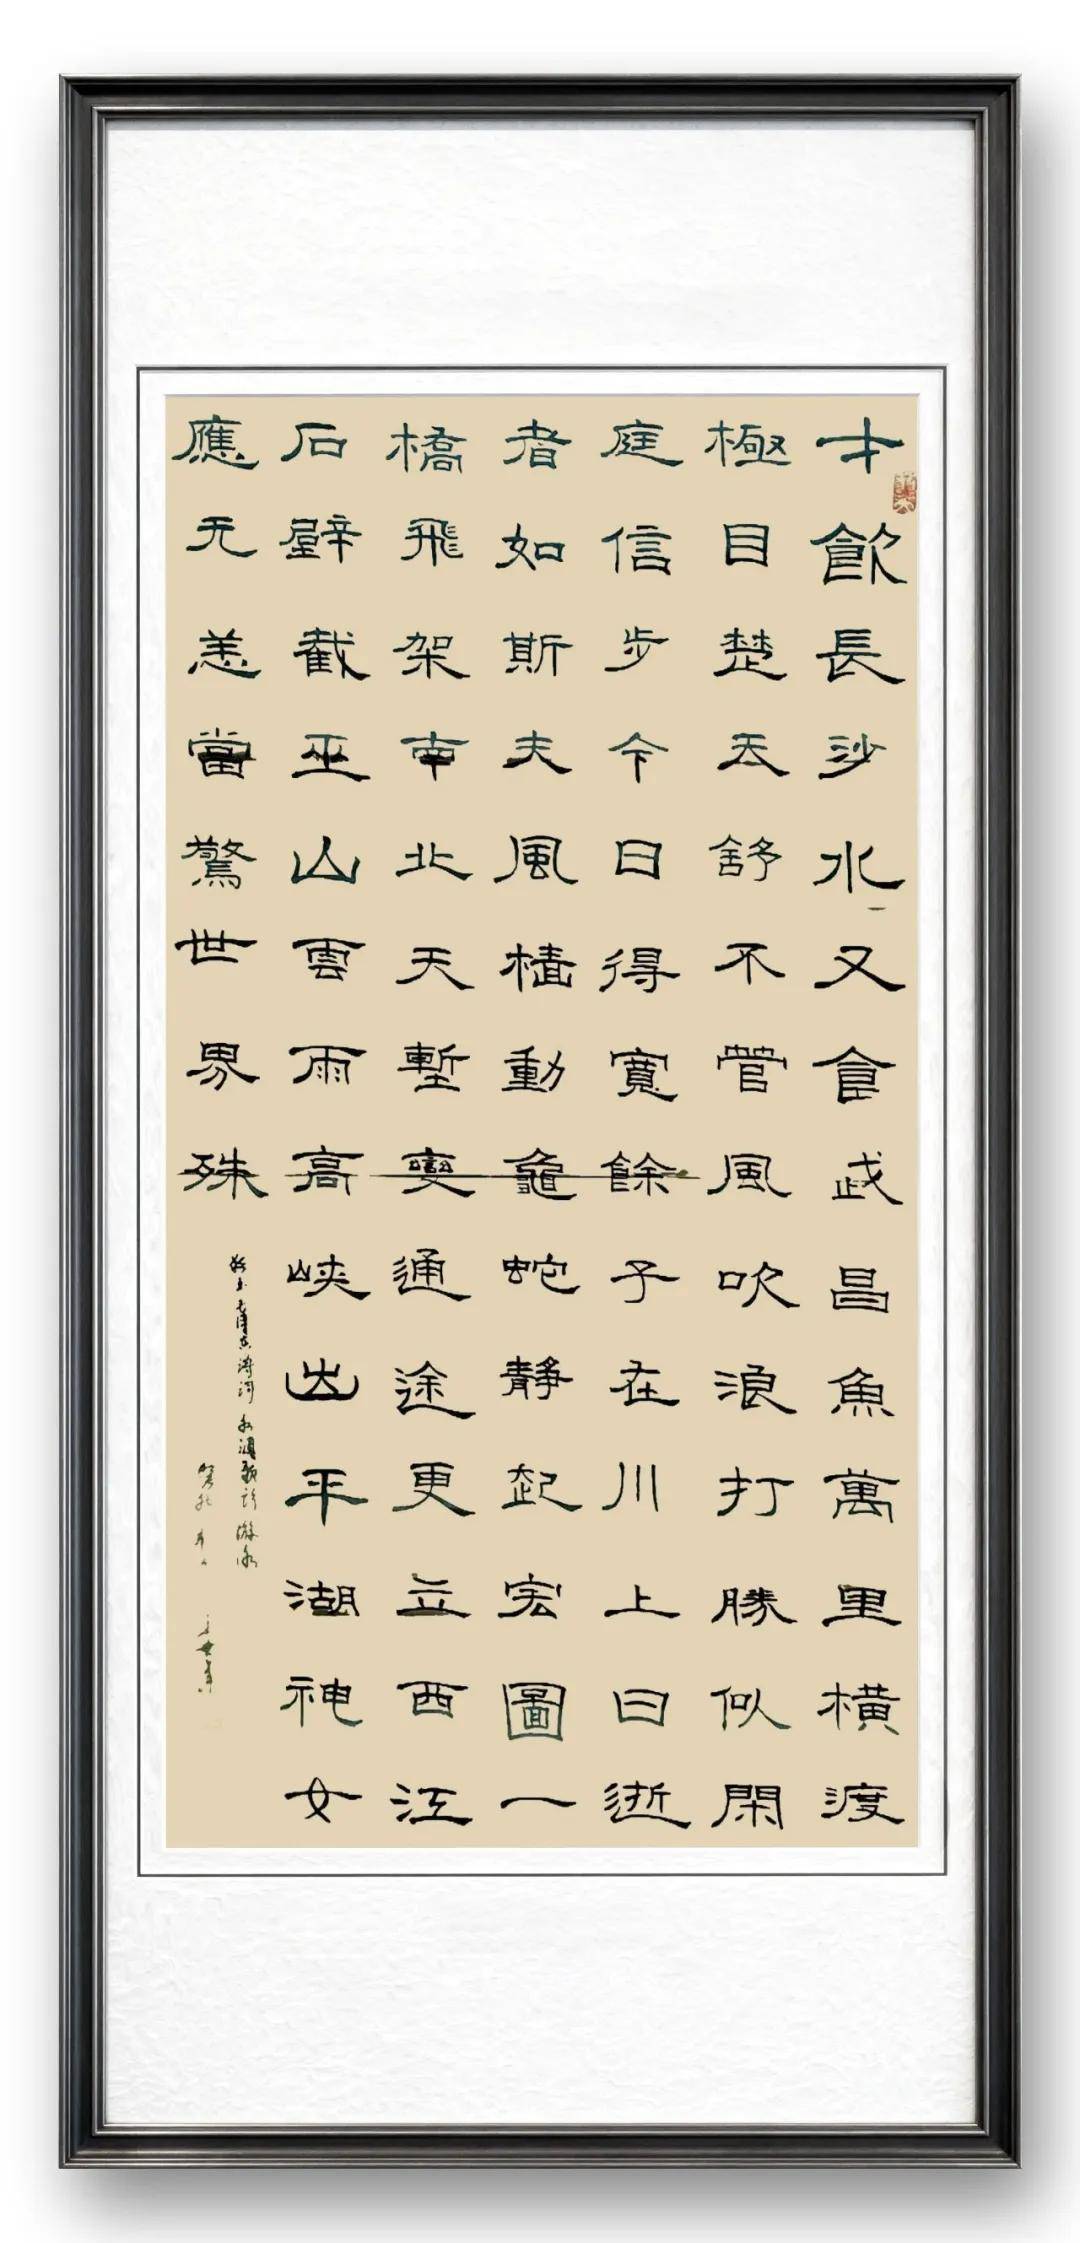 才飲長沙水又食武昌魚萬里橫渡
極目楚天舒不管風吹浪打勝似閑
庭信步今日得寬餘子在川上曰逝
者如斯夫風檣動龜蛇靜起宏圖一
橋飛架南北天塹變通途更立西江
石壁截巫山雲雨高峽出平湖神女
應无恙當驚世界殊
毛澤东诗词水调歌頭游泳
癸卯年